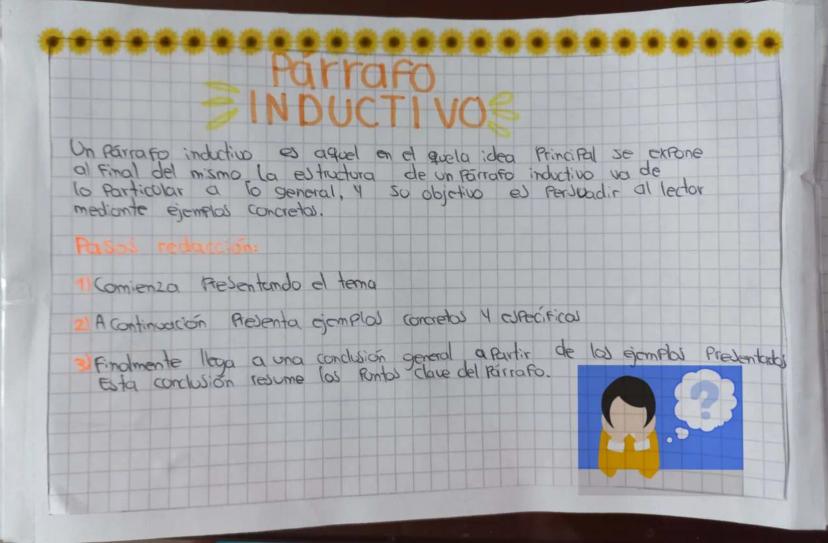 Párrafo
INDUCTIVO
Un Párrafo inductivo es aquel en el quela idea Principal se expone
al final del mismo. la estructura de un Párrafo inductivo va de
lo Particular a lo general, y su objetivo es Persuadir al lector
mediante ejemplos concretos.
Pasos redacción:
1) Comienza Presentando el tema
2) A continuación Presenta ejemplos concretos y específicos
3) Finalmente llega a una conclusión general a Partir de los ejemplos Presentados
Esta conclusión resume los Puntos clave del Párrafo.
?